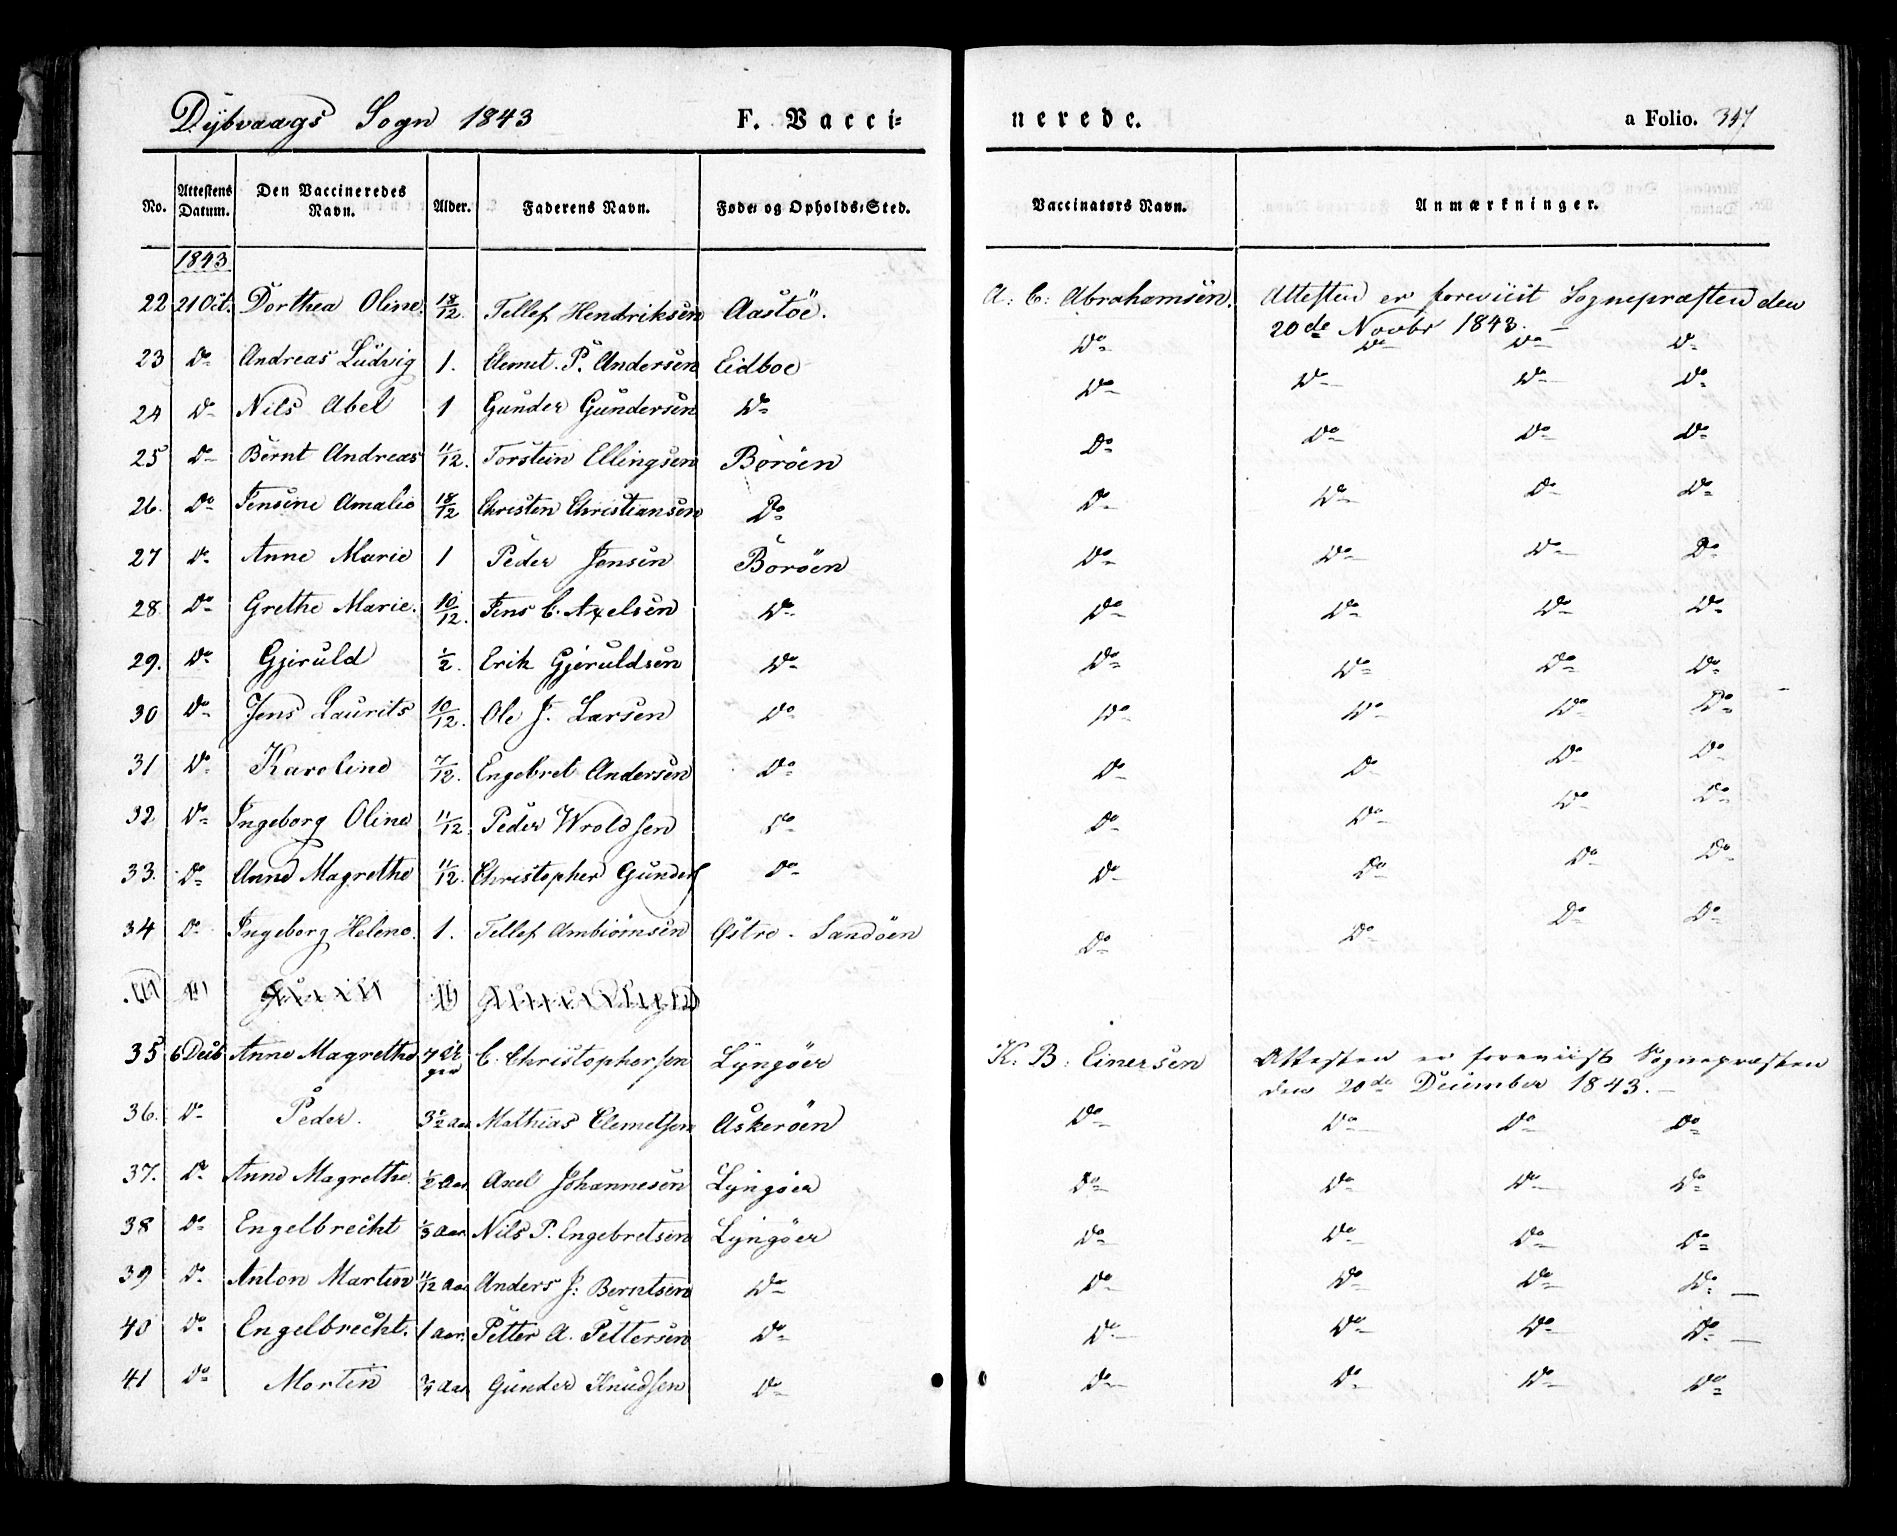 Dybvaags Sogn 1843 F. Vacci= nerede. a Folio. 347
No. Attestens Datum. Den Vaccineredes Navn. Alder. Faderens Navn. Føde= og Opholds=Sted. Vaccinators Navn. Anmærkninger.
1843
22 21 Oct. Dorthea Oline. 18/12. Tellef Hendriksen Aastöe. A: C: Abrahamsen. Attesten er foreviist Sognepræsten den
20de Novbr 1843. –
23 Do Andreas Ludvig 1. Clemet. P. Andersen Eidboe Do Do Do Do
24 Do Nils Abel 1 Gunder Gundersen Do Do Do Do Do
25 Do Bernt Andreas 11/12. Torstein Ellingsen Boröen Do Do Do Do
26. Do Jensine Amalie 18/12 Christen Christiansen Do Do Do Do Do
27 Do Anne Marie 1 Peder Jensen Boröen Do Do Do Do
28 Do Grethe Marie. 10/12. Jens C. Axelsen Do Do Do Do Do
29. Do Gjeruld 1/2. Erik Gjeruldsen Do Do Do Do Do
30 Do Jens Laurits 10/12. Ole J. Larsen Do Do Do Do Do
31 Do Karoline 7/12. Engebret Andersen Do Do Do Do Do
32 Do Ingeborg Oline 11/12 Peder Wroldsen Do Do Do Do Do
33. Do Anne Magrethe 11/12. Christopher Gunders Do Do Do Do Do
34 Do Ingeborg Helene. 1. Tellef Ambiörnsen Østre - Sandöen Do Do Do Do
35 6 Decb Anne Magrethe 7 C. Christophersen Lyngöer K: B: Einersen Attesten er foreviist Sognepræsten
den 20de December 1843. –
36. Do Peder. Mathias Clemetsen Askeröen Do Do Do Do
37. Do Anne Magrethe. 1/2 Aar Axel Johannesen Lyngöer Do Do Do Do
38 Do Engelbrecht 1/3 Aar Nils P. Engebretsen Lyngöer Do Do Do Do
39 Do Anton Marten 11/12 Aar Anders J: Berntsen Do Do Do Do Do
40 Do Engelbrecht. 1 Aar. Petter A. Pettersen Do Do Do Do Do
41 Do Morten 3/4 Aar Gunder Knudsen Do Do Do Do Do